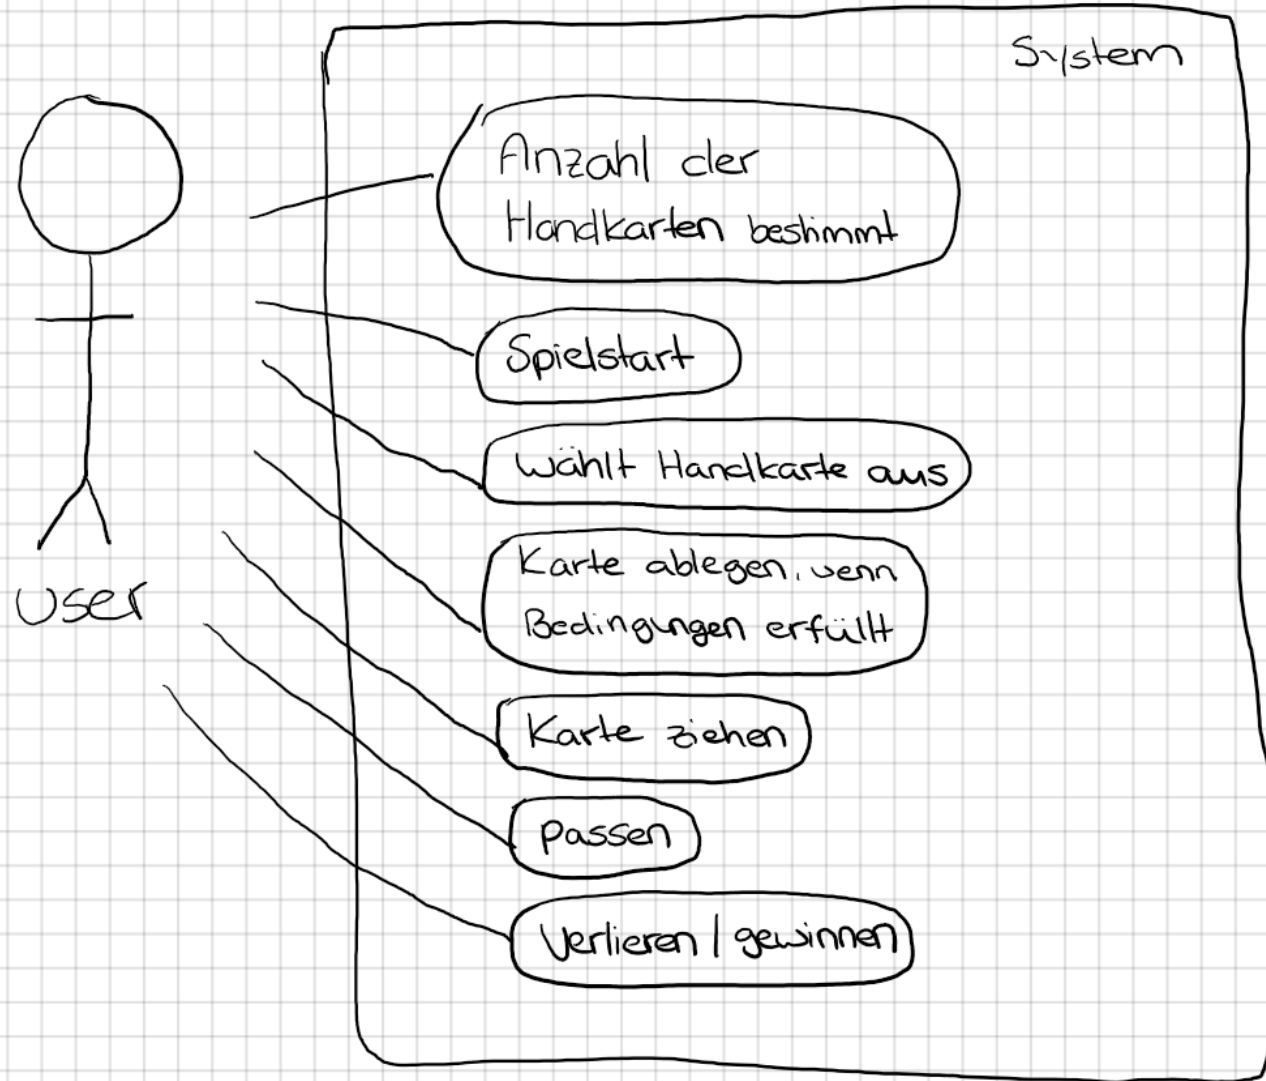 System
Anzahl der
Handkarten bestimmt
Spielstart
wählt Handkarte aus
Karte ablegen, wenn
Bedingungen erfüllt
User
Karte ziehen
passen
Verlieren / gewinnen